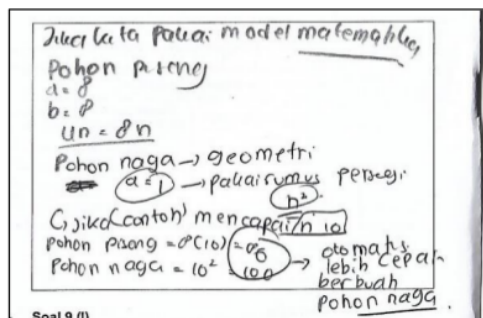 Jika kita pakai model matematika
Pohon pisang
a = 8
b = 8
Un = 8n
Pohon naga → geometri
a = 1 → pakai rumus persegi
n²
C, jika (contoh) mencapai n 10
pohon pisang = 8(10) = 80
Pohon naga = 10² = 100
→ otomatis
lebih cepat
berbuah
pohon naga.
Soal 9 (I)